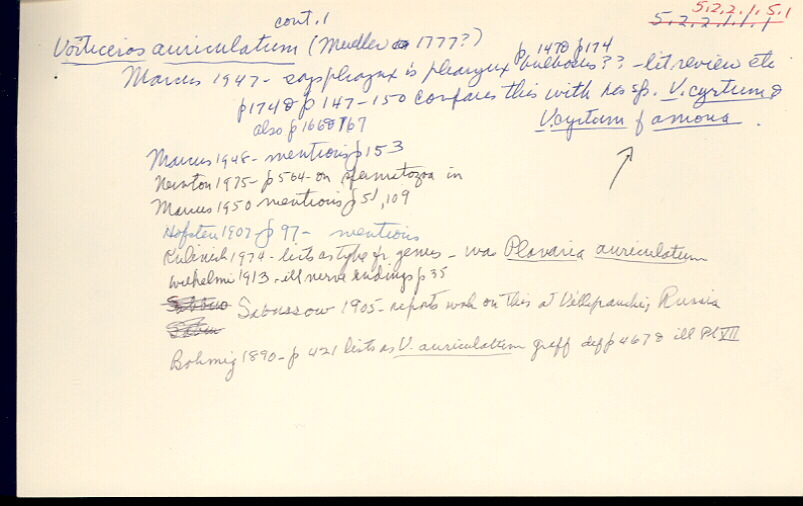 cont. 1
5.2.2.1.5.1
5.2.2.1.1.1
Vorticeros auriculatum (Mueller 1777?)
p 147 & p174
Marcus 1947 - says pharynx is pharynx bulbosus?? - lit review etc
p 174 & p 147-150 compares this with his sp. V. cyrtum &
also p 166 & 167 V. cyrtum f amoena.
Marcus 1948 - mentions p 153
Newton 1975 - p 564 - on spermatozoa in
Marcus 1950 mentions p 51, 109
Hofsten 1907 - p 97 - mentions
Kulinich 1974 - lists as type for genus - was Planaria auriculatum
Wilhelmi 1913 - ill nerve endings p 35
Sabussow 1905 - reports work on this at Villefranche, Russia
Bohmig 1890 - p 421 lists as V. auriculatum graff def p 467 & ill Pl VII